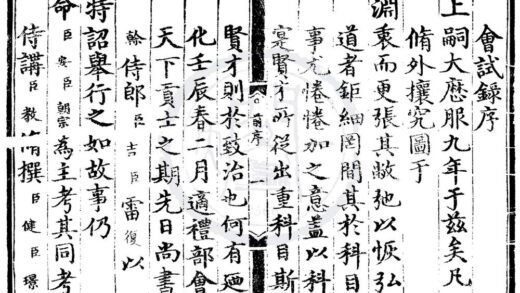 會試錄序
上嗣大歷服九年于茲矣凡
脩外攘究圖于
淵衷而更張其敝弛以恢弘
道者鉅細罔間其於科目
事尤惓惓加之意蓋以科
寔賢才所從出重科目斯
前序 一
賢才則於致治也何有廼
化壬辰春二月適禮部會
天下貢士之期先日尚書
幹侍郎臣吉臣雷復以
特詔舉行之如故事仍
命臣安臣朝宗為主考其同考
侍講臣敎脩撰臣健臣璟